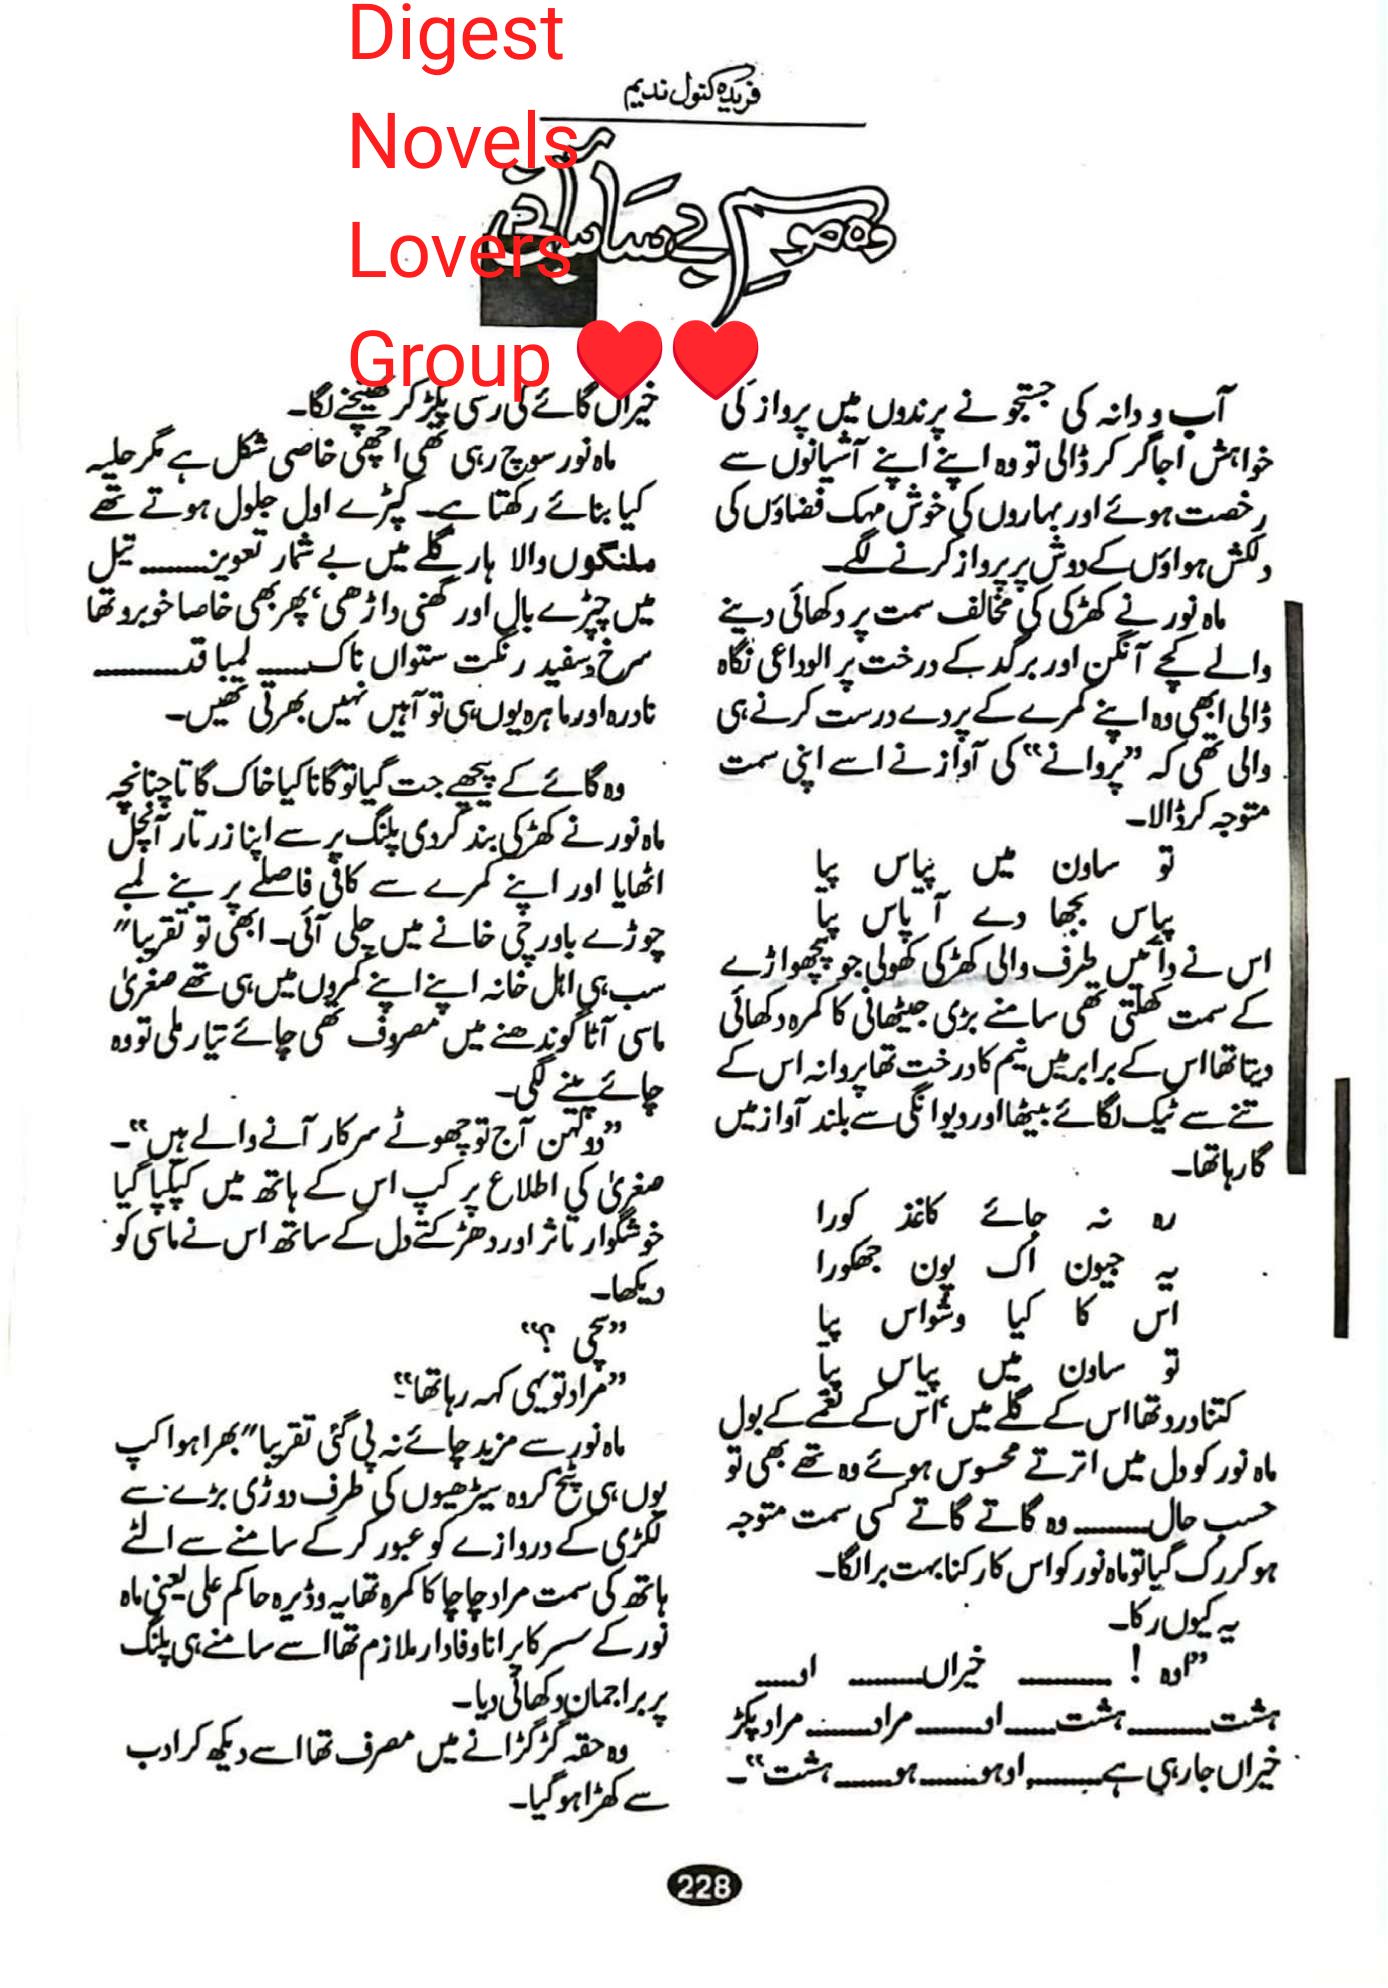 Digest
Novels
Lovers
Group ❤❤
فریدہ کنول ندیم
وہ موسمِ بے سائباں
آب و دانہ کی جستجو نے پرندوں میں پرواز کی
خواہش اجاگر کر ڈالی تو وہ اپنے اپنے آشیانوں سے
رخصت ہوئے اور بہاروں کی خوش مہک فضاؤں کی
دلکش ہواؤں کے دوش پر پرواز کرنے لگے۔
ماہ نور نے کھڑکی کی مخالف سمت پر دکھائی دینے
والے کچے آنگن اور برگد کے درخت پر الوداعی نگاہ
ڈالی ابھی وہ اپنے کمرے کے پردے درست کرنے ہی
والی تھی کہ ”پروانے“ کی آواز نے اسے اپنی سمت
متوجہ کر ڈالا۔
تو ساون میں پیاس پیا
پیاس بجھا دے آ پاس پیا
اس نے دائیں طرف والی کھڑکی کھولی جو پچھواڑے
کے سمت کھلتی تھی سامنے بڑی جیٹھانی کا کمرہ دکھائی
دیتا تھا اس کے برابر میں نیم کا درخت تھا پروانہ اس کے
تنے سے ٹیک لگائے بیٹھا اور دیوانگی سے بلند آواز میں
گا رہا تھا۔
رہ نہ جائے کاغذ کورا
یہ جیون اک پون جھکورا
اس کا کیا وشواس پیا
تو ساون میں پیاس پیا
کتنا درد تھا اس کے گلے میں‘ اس کے نغمے کے بول
ماہ نور کو دل میں اترتے محسوس ہوئے وہ تھے بھی تو
حسب حال........ وہ گاتے گاتے کسی سمت متوجہ
ہو کر رک گیا تو ماہ نور کو اس کا رکنا بہت برا لگا۔
یہ کیوں رکا۔
”اوہ ! .......... خیراں........ او.....
ہشت.........ہشت......او.......مراد........مراد پکڑ
خیراں جا رہی ہے.........اوہو......ہو......ہشت“۔
خیراں گائے کی رسی پکڑ کر کھینچنے لگا۔
ماہ نور سوچ رہی تھی اچھی خاصی شکل ہے مگر حلیہ
کیا بنائے رکھتا ہے۔ کپڑے اول جلول ہوتے تھے
ملنگوں والا ہار گلے میں بے شمار تعویز....... تیل
میں چپڑے بال اور گھنی داڑھی‘ پھر بھی خاصا خوبرو تھا
سرخ و سفید رنگت ستواں ناک...... لمبا قد.........
نادرہ اور ماہرہ یوں ہی تو آہیں نہیں بھرتی تھیں۔
وہ گائے کے پیچھے جت گیا تو گانا کیا خاک گاتا چنانچہ
ماہ نور نے کھڑکی بند کر دی پلنگ پر سے اپنا زرتار آنچل
اٹھایا اور اپنے کمرے سے کافی فاصلے پر بنے لمبے
چوڑے باورچی خانے میں چلی آئی۔ ابھی تو تقریبا″
سب ہی اہل خانہ اپنے اپنے کمروں میں ہی تھے صغریٰ
ماسی آٹا گوندھنے میں مصروف تھی چائے تیار ملی تو وہ
چائے پینے لگی۔
”دولہن آج تو چھوٹے سرکار آنے والے ہیں“۔
صغریٰ کی اطلاع پر کپ اس کے ہاتھ میں کپکپا گیا
خوشگوار تاثر اور دھڑکتے دل کے ساتھ اس نے ماسی کو
دیکھا۔
”سچی ؟“
”مراد تو یہی کہہ رہا تھا“۔
ماہ نور سے مزید چائے نہ پی گئی تقریبا″ بھرا ہوا کپ
یوں ہی پٹخ کر وہ سیڑھیوں کی طرف دوڑی بڑے سے
لکڑی کے دروازے کو عبور کر کے سامنے سے الٹے
ہاتھ کی سمت مراد چاچا کا کمرہ تھا یہ وڈیرہ حاکم علی یعنی ماہ
نور کے سسر کا پرانا وفادار ملازم تھا اسے سامنے ہی پلنگ
پر براجمان دکھائی دیا۔
وہ حقہ گڑگڑانے میں مصرف تھا اسے دیکھ کر ادب
سے کھڑا ہو گیا۔
228